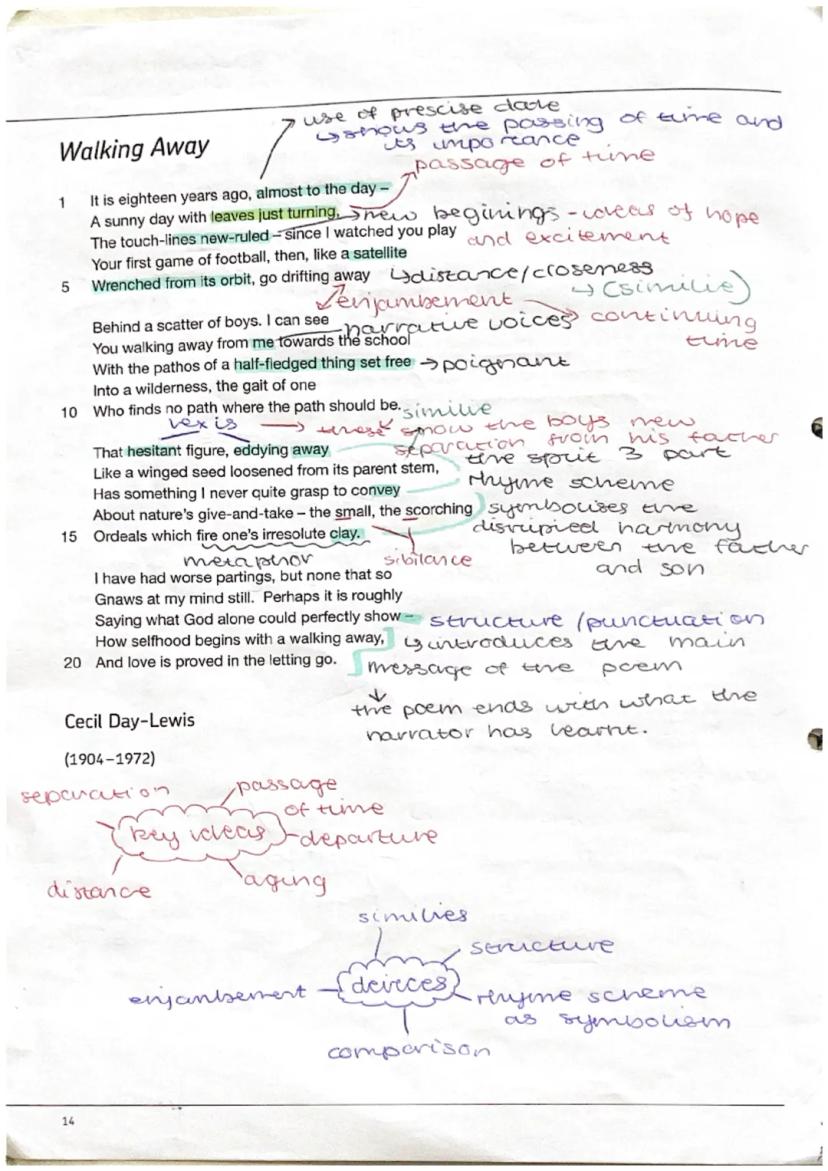 use of prescise date
↳shows the passing of time and
its imporance
Walking Away
passage of time
1 It is eighteen years ago, almost to the day –
A sunny day with leaves just turning,
→new beginings - ideas of hope
and excitement
The touch-lines new-ruled – since I watched you play
Your first game of football, then, like a satellite
5 Wrenched from its orbit, go drifting away
↳distance/closeness
→ (similie)
enjambement → continuing
time
Behind a scatter of boys. I can see
narrative voices
You walking away from me towards the school
With the pathos of a half-fledged thing set free → poignant
Into a wilderness, the gait of one
10 Who finds no path where the path should be.
similie
lexis → these show the boys new
separation from his father
That hesitant figure, eddying away
Like a winged seed loosened from its parent stem,
Has something I never quite grasp to convey
About nature's give-and-take – the small, the scorching
15 Ordeals which fire one's irresolute clay.
the split 3 part
rhyme scheme
symbolises the
disrupied harmony
between the father
and son
metaphor
sibilance
I have had worse partings, but none that so
Gnaws at my mind still. Perhaps it is roughly
Saying what God alone could perfectly show –
How selfhood begins with a walking away,
20 And love is proved in the letting go.
structure /punctuation
↳introduces the main
message of the poem
↓
the poem ends with what the
narrator has learnt.
Cecil Day-Lewis
(1904–1972)
separation
passage
of time
key ideas
departure
distance
aging
similies
structure
devices
enjambement
rhyme scheme
as symbolism
comparison
14